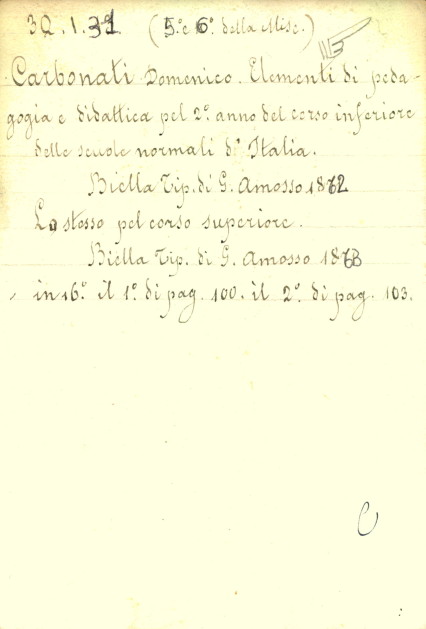 30.1.31 (5.º e 6.º della Misc.)
Carbonati Domenico. Elementi di peda-
gogia e didattica pel 2.º anno del corso inferiore
delle scuole normali d'Italia.
Biella Tip. di G. Amosso 1872
Lo stesso pel corso superiore.
Biella Tip. di G. Amosso 1873
in 16.º il 1.º di pag. 100. il 2.º di pag. 103.
C